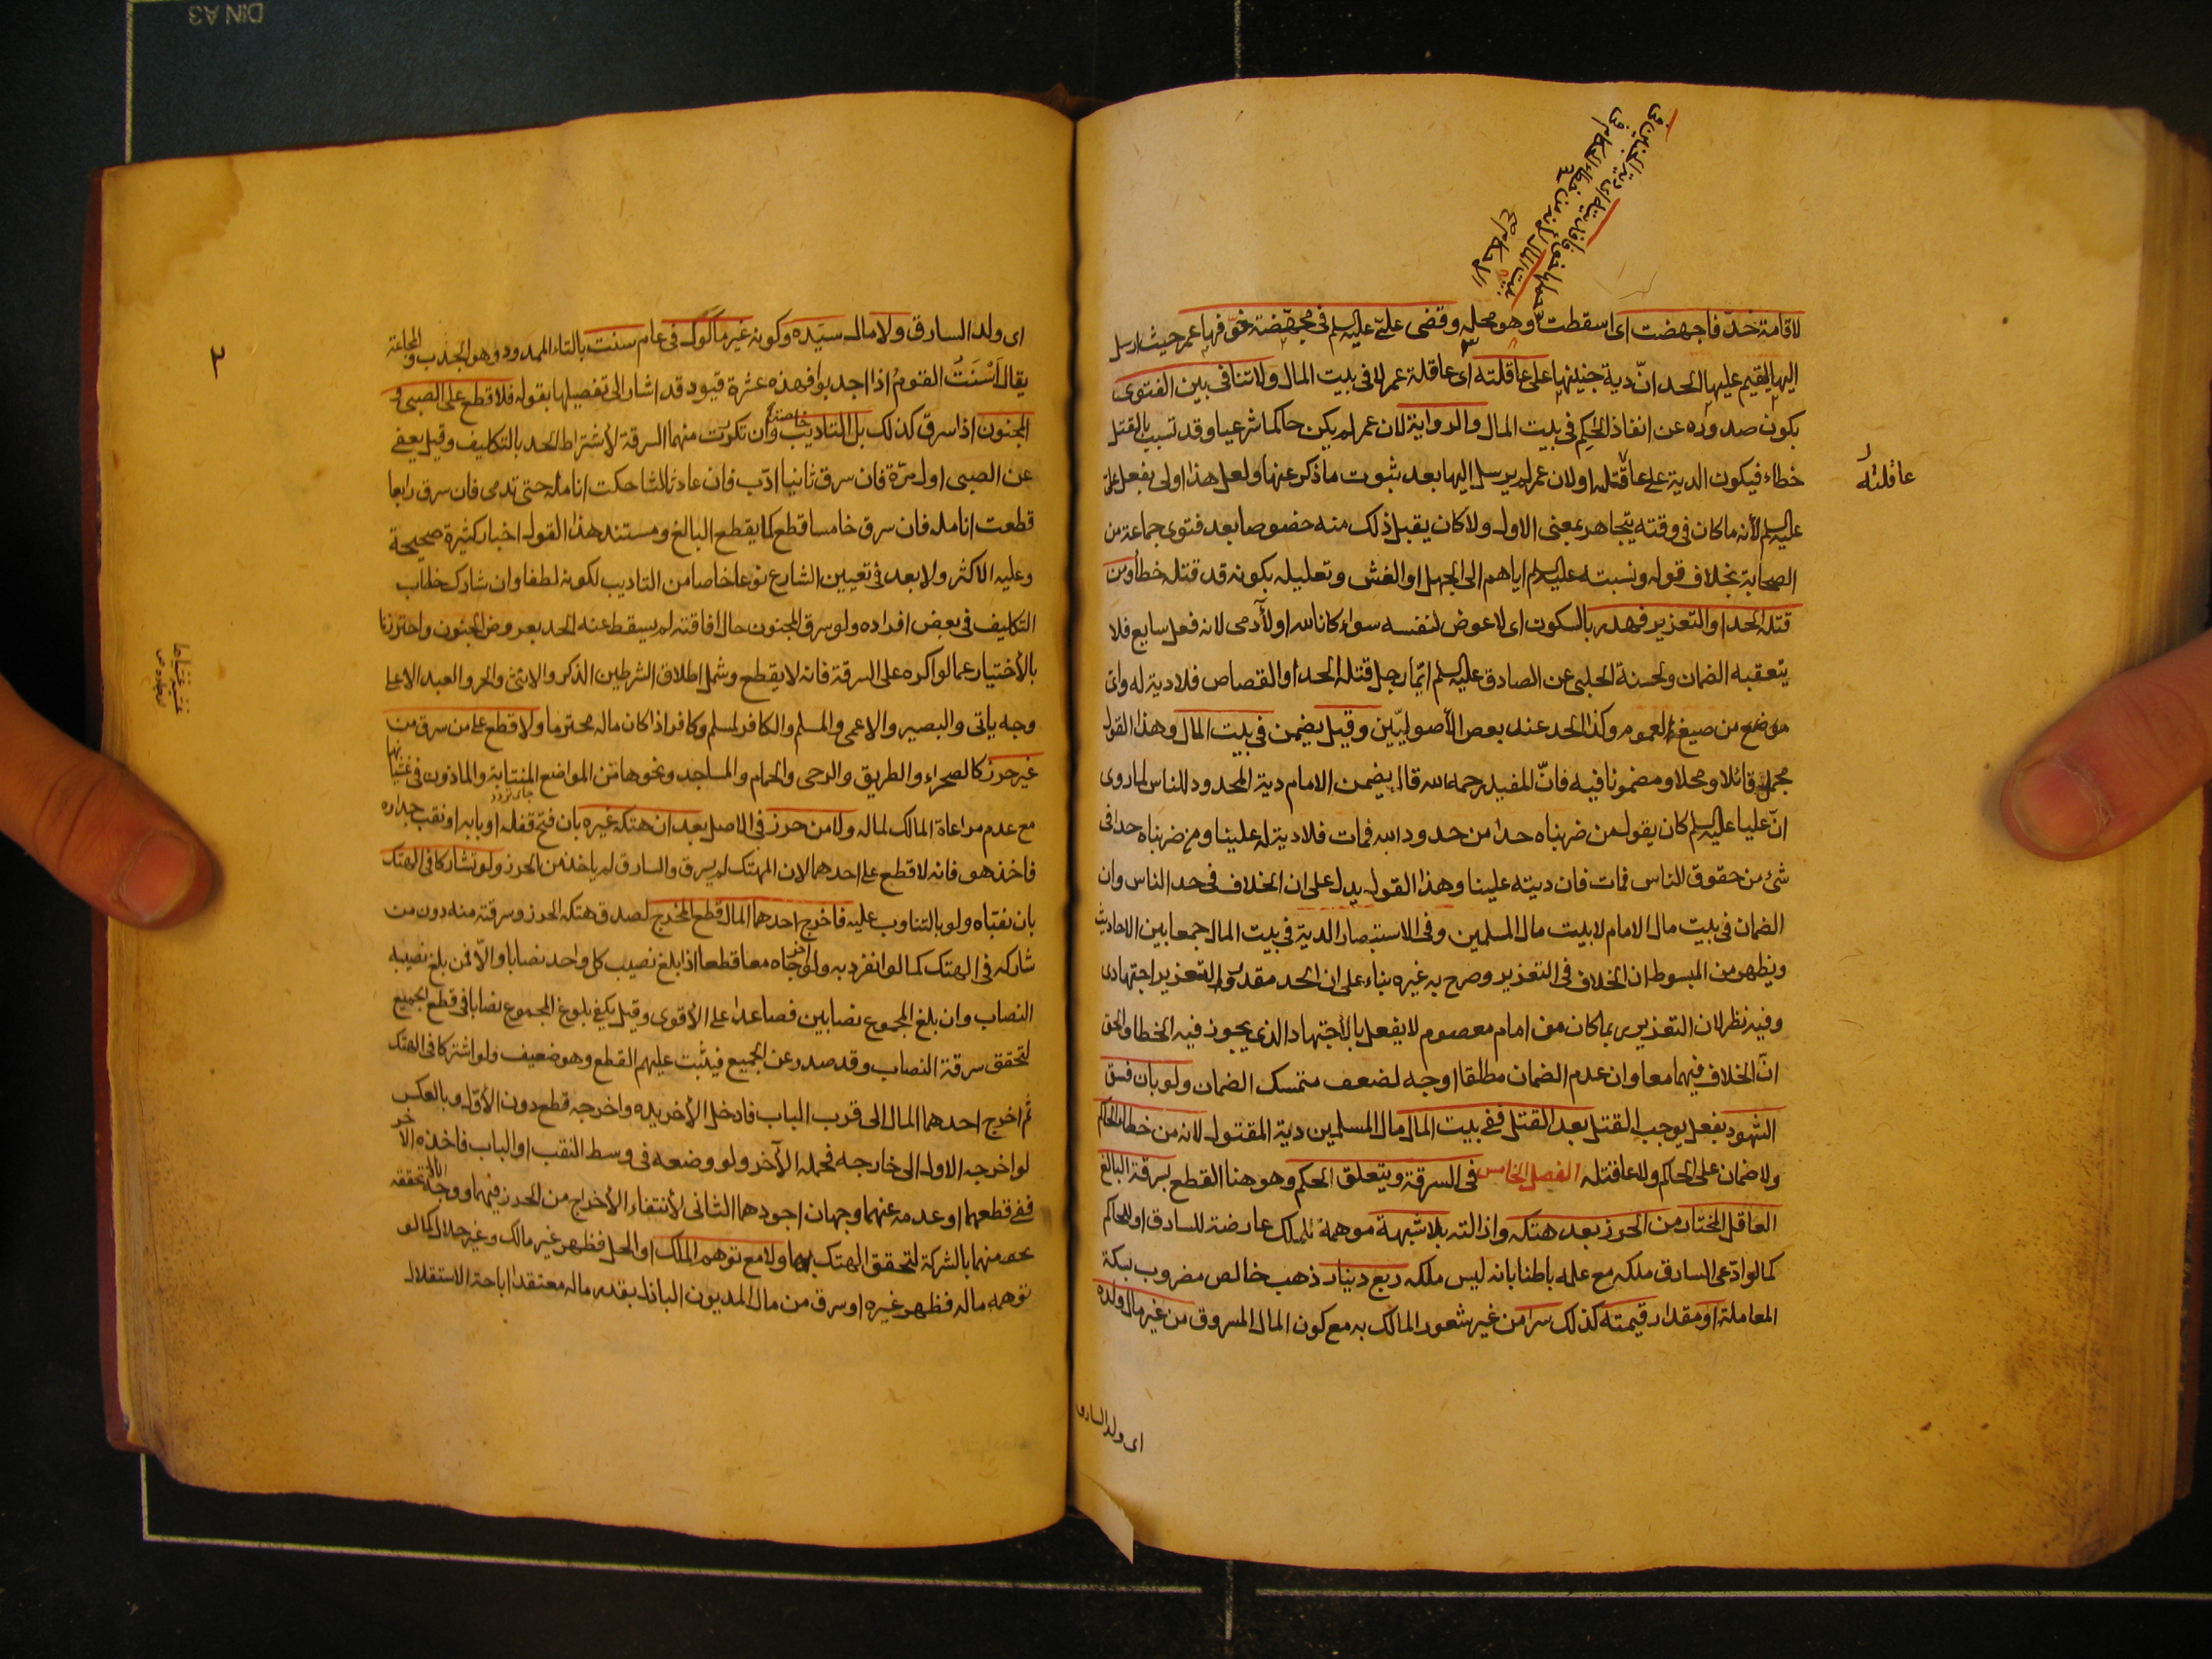 لاقامة حدّ فاجهضت اى اسقطت وهو محله وقضى علىّ عليه السلم فى مجهضة خوّفها عمر حيث ارسل
اليها ليقيم عليها الحد انّ دية جنينها على عاقلته اى عاقلة عمر لا فى بيت المال ولا تنافى بين الفتوى
بكون صدوره عن انفاذ الحكم فى بيت المال والرواية لان عمر لم يكن حاكما شرعيا وقد تسبب بالقتل
خطاء فيكون الدية على عاقتله او لان عمر لم يرسل اليها بعد ثبوت ما ذكر عنها ولعل هذا اولى بفعل على
عليه السلم لأنه ما كان فى وقته يتجاهر بمعنى الاول ولا كان يقبل ذلك منه خصوصا بعد فتوى جماعة من
الصحابة بخلاف قوله ونسبته عليه السلام اياهم الى الجهل او الغش وتعليله بكونه قد قتله خطأ ومن
قتله الحد او التعزير فهدر بالسكون اى لا عوض لنفسه سواء كانا لله او لآدمى لانه فعل سايع فلا
يتعقبه الضمان ولحسنة الحلبى عن الصادق عليه السلم ايّما رجل قتله الحد او القصاص فلا دية له واى
موضع من صيغ العموم وكذا الحد عند بعض الأصوليّين وقيل يضمن فى بيت المال وهذا القول
مجمل قائلا ومحلا ومضمونا فيه فانّ المفيد رحمه الله قال يضمن الامام دية المحدود للناس لما روى
انّ عليا عليه السلم كان يقول من ضربناه حدا من حدود الله فمات فلا دية له علينا ومن ضربناه حدا فى
شئ من حقوق الناس فمات فان ديته علينا وهذا القول يدل على ان الخلاف فى حد الناس وان
الضمان فى بيت مال الامام لا بيت مال المسلمين وفى الاستبصار الدية فى بيت المال جمعا بين الاحاديث
ويظهر من المبسوط ان الخلاف فى التعزير وصرح به غيره بناء على ان الحد مقدر والتعزير اجتهادى
وفيه نظر لان التعزير ربما كان من امام معصوم لا يفعل بالأجتهاد الذى يجوز فيه الخطا والحق
انّ الخلاف فيهما معا وان عدم الضمان مطلقا اوجه لضعف متمسك الضمان ولو بان فسق
الشهود بفعل يوجب القتل بعد القتل ففى بيت المال مال المسلمين دية المقتول لانه من خطا الحاكم
ولا ضمان على الحاكم ولا عاقتله الفصل الخامس فى السرقة ويتعلق الحكم وهو هنا القطع بسرقة البالغ
العاقل المختار من الحرز بعد هتكه وازالته بلا شبهة موهمة للملك عارضة للسارق او للحاكم
كما لو ادّعى السارق ملكه مع علمه باطنا بانه ليس ملكه ربع دينار ذهب خالص مضروب بسكة
المعاملة او مقدار قيمته كذلك سرا من غير شعور المالك به مع كون المال المسروق من غير مال ولده
اى ولد السارق
عاقلته
اى ولد السارق ولا مال سيّده وكونه غير ماكول فى عام سنت بالتاء الممدودة وهو الجدب والمجاعة
يقال اَسْنَتَ القومُ اذا اجدبوا فهذه عشرة قيود قد اشار الى تفصيلها بقوله فلا قطع على الصبى و
المجنون اذا سرق كذلك بل التاديب خاصة وان تكررت منهما السرقة لأشتراط الحد بالتكليف وقيل يعفى
عن الصبى اول مرّة فان سرق ثانيا ادّب فان عاد ثالثا حكت انامله حتى تدمى فان سرق رابعا
قطعت انامله فان سرق خامسا قطع كما يقطع البالغ ومستند هذا القول اخبار كثيرة صحيحة
وعليه الاكثر ولا بعد فى تعيين الشارع نوعا خاصا من التاديب لكونه لطفا وان شارك خطاب
التكليف فى بعض افراده ولو سرق المجنون حال افاقته لم يسقط عنه الحد بعروض الجنون واحترزنا
بالأختيار عما لو اكره على السرقة فانه لا يقطع وشمل اطلاق الشرطين الذكر والانثى والحر والعبد الا على
وجه ياتى والبصير والاعمى والمسلم والكافر لمسلم وكافر اذا كان ماله محترما ولا قطع على من سرق من
غير حرز كالصحراء والطريق والرحى والحمام والمساجد ونحوها من المواضع المنتابة والماذون فى غشيانها
مع عدم مراعاة المالك لماله ولا من حرز فى الاصل بعد ان هتكه غيره بان فتح قفله او بابه او نقب جداره
فاخذ هو فانه لا قطع على احدهما لان المهتك لم يسرق والسارق لم ياخذ من الحرز ولو تشاركا فى الهتك
بان نقباه ولو بالتناوب عليه فاخرج احدهما المال قطع المخرج لصدق هتكه الحرز وسرقته منه دون من
شاركه فى الهتك كما لو انفرد به ولو اخرجاه معا قطعا اذا بلغ نصيب كل واحد نصابا والا فمن بلغ نصيبه
النصاب وان بلغ المجموع نصابين فصاعدا على الأقوى وقيل يكفى بلوغ المجموع نصابا فى قطع الجميع
لتحقق سرقة النصاب وقد صدر عن الجميع فيثبت عليهم القطع وهو ضعيف ولو اشتركا فى الهتك
ثم اخرج احدهما المال الى قرب الباب فادخل الأخر يده واخرجه قطع دون الأوّل وبالعكس
لو اخرجه الاول الى خارجه فحمله الآخر ولو وضعه فى وسط النقب او الباب فاخذه الاخر
ففى قطعهما او عدمه عنهما وجهان اجودهما الثانى لأنتفاء الأخراج من الحرز فيهما ووجه الاول تحققه
منهما بالشركة لتحقق الهتك بهما ولا مع توهم الملك او الحل فظهر غير مالك وغير حلال كما لو
توهمه ماله فظهر غيره او سرق من مال المديون الباذل بقدر ماله معتقدا اباحة الاستقلال
٢